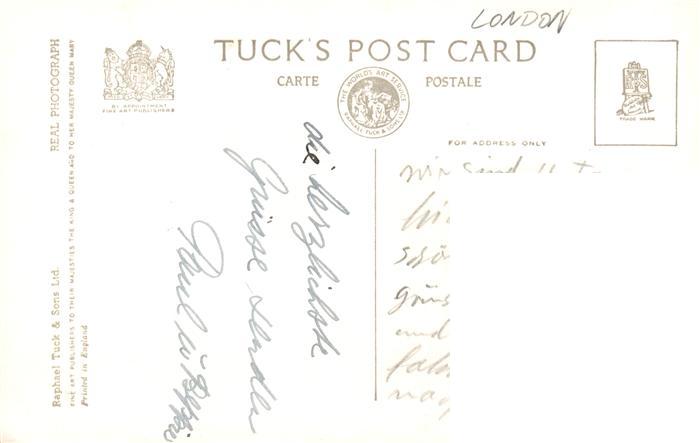 LONDON
TUCK'S POST CARD
CARTE POSTALE
THE WORLD'S ART SERVICE
RAPHAEL TUCK & SONS LTD
BY APPOINTMENT
FINE ART PUBLISHERS
TRADE MARK
FOR ADDRESS ONLY
REAL PHOTOGRAPH
Raphael Tuck & Sons Ltd.
FINE ART PUBLISHERS TO THEIR MAJESTIES THE KING & QUEEN AND TO HER MAJESTY QUEEN MARY
Printed in England
die herzlichste
Grüsse senden
Paul u.
wir sind
und